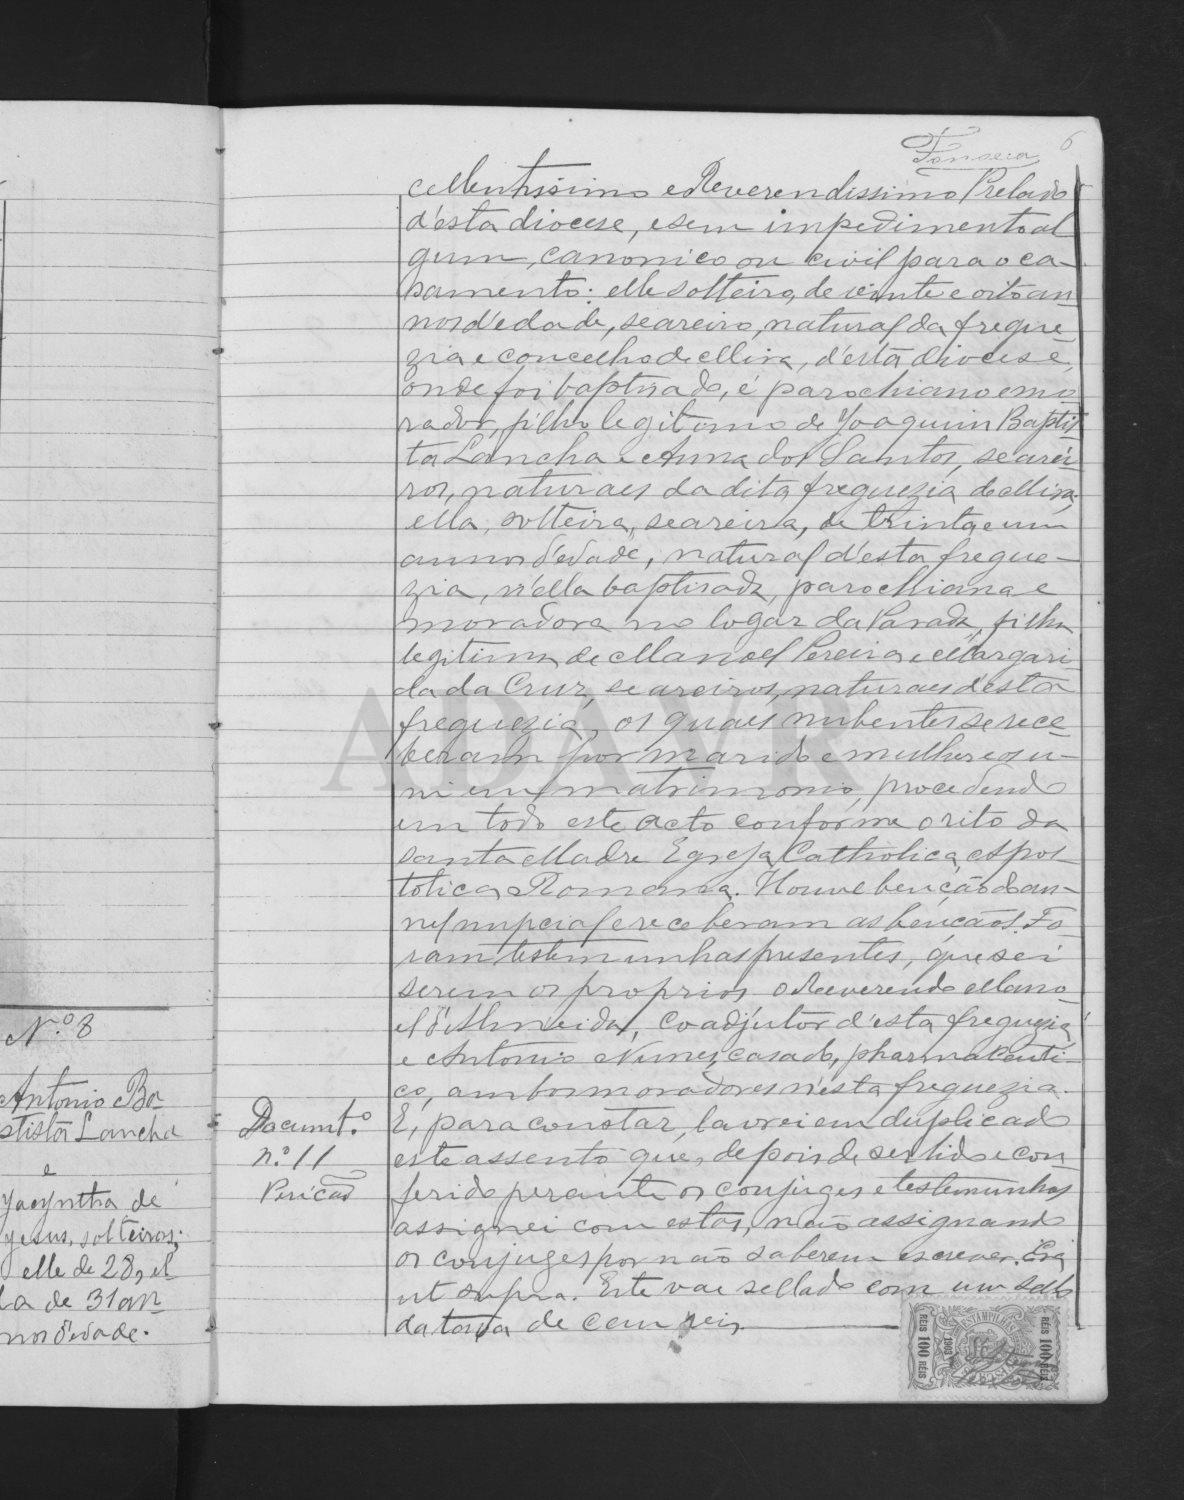 Fonseca 6
cellentissimo e Reverendissimo Prelado
d'esta diocese, e sem impedimento al
gum, canonico ou civil para o ca-
samento: elle solteiro, de vinte e oito an-
nos d'edade, seareiro, natural da fregue-
zia e concelho de Mira, d'esta diocese,
onde foi baptisado, é parochiano e mo-
rador, filho legitimo de Joaquim Baptis-
ta Lancha e Anna dos Santos, searei-
ros, naturaes da dita freguezia de Mira;
ella, solteira, seareira, de trinta e um
annos d'edade, natural d'esta fregue-
zia, n'ella baptisada, parochiana e
moradora no logar da Parada, filha
legitima de Manoel Pereira e Margari-
da da Cruz, seareiros, naturaes d'esta
freguezia, os quaes nubentes se rece-
beram por marido e mulher e os u-
ni em matrimonio, procedendo
em todo este acto conforme o rito da
Santa Madre Egreja Catholica, Apos-
tolica Romana. Houve benção do an-
nel nupcial e receberam as bençãos. Fo-
ram testemunhas presentes, que sei
serem os proprios o Reverendo Mano-
el d'Almeida, coadjutor d'esta freguezia
e Antonio Nunes, casado, pharmaceuti-
co, ambos moradores n'esta freguezia.
E, para constar, lavrei em duplicado
este assento que, depois de ser lido e con-
ferido perante os conjuges e testemunhas
assignei com estas, não assignando
os conjuges por não saberem escrever. Era
ut supra. Este vae sellado com um sello
da taxa de cem reis
Documt.º
n.º 11
N.º 8
Antonio Ba-
ptista Lancha
e
Jacyntha de
Jesus, solteiros;
elle de 28, el-
la de 31 an-
nos d'edade.
ADAVR
ESTAMPILHA
RÉIS 100 RÉIS
1903
RÉIS 100 RÉIS